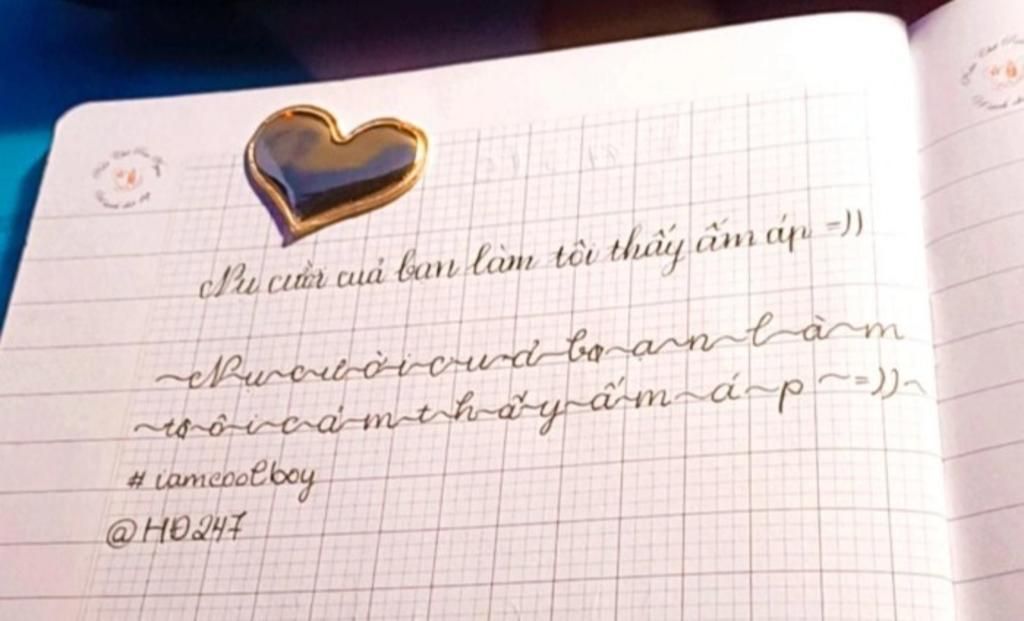 Nụ cười của bạn làm tôi thấy ấm áp =))
~Nụ~cười~của~bạn~làm
~tôi~cảm~thấy~ấm~áp~=))~
# iamcoolboy
@HĐ247